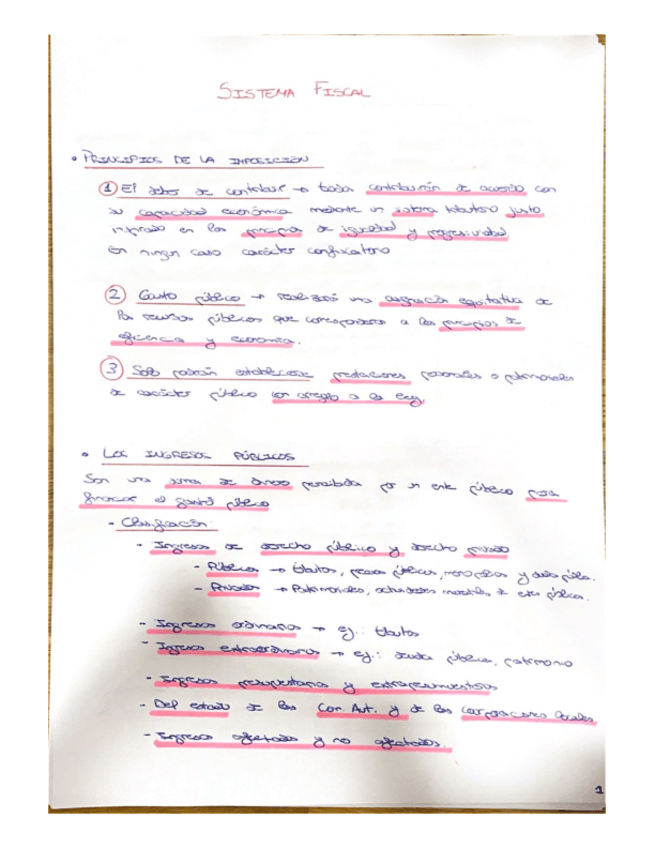 SISTEMA FISCAL
• PRINCIPIOS DE LA IMPOSICIÓN
① El deber de contribuir → todos contribuirán de acuerdo con
su capacidad económica mediante un sistema tributario justo
inspirado en los principios de igualdad y progresividad
en ningún caso carácter confiscatorio
② Gasto público → realizará una asignación equitativa de
los recursos públicos que corresponderá a los principios de
eficiencia y economía.
③ Solo podrán establecerse prestaciones personales o patrimoniales
de carácter público con arreglo a la ley.
• LOS INGRESOS PÚBLICOS
Son una suma de dinero percibida por un ente público para
financiar el gasto público
- Clasificación:
- Ingresos de derecho público y derecho privado
- Públicos → tributos, precios públicos, monopolios y deuda públ.
- Privados → Patrimoniales, actividades de entes públicos.
- Ingresos ordinarios → ej.: tributos
- Ingresos extraordinarios → ej.: deuda pública, patrimonio
- Ingresos presupuestarios y extrapresupuestarios
- Del estado de las Com. Aut. y de las corporaciones locales
- Ingresos afectados y no afectados.
1